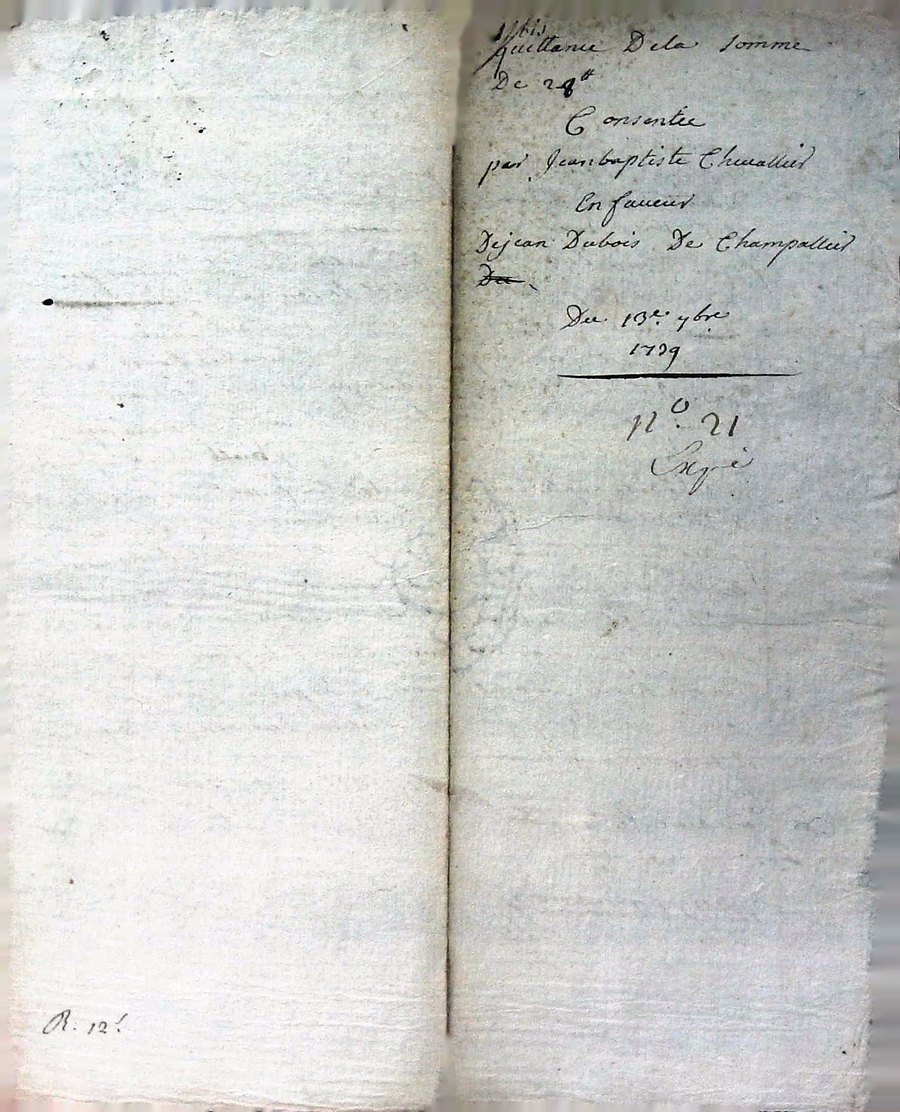 quittance De la somme
De 28#
Consentée
par Jeanbaptiste Chevallier
En faveur
De jean Dubois De Champallier
Du 13e. 7bre
1739
n°. 21
R. 12s.